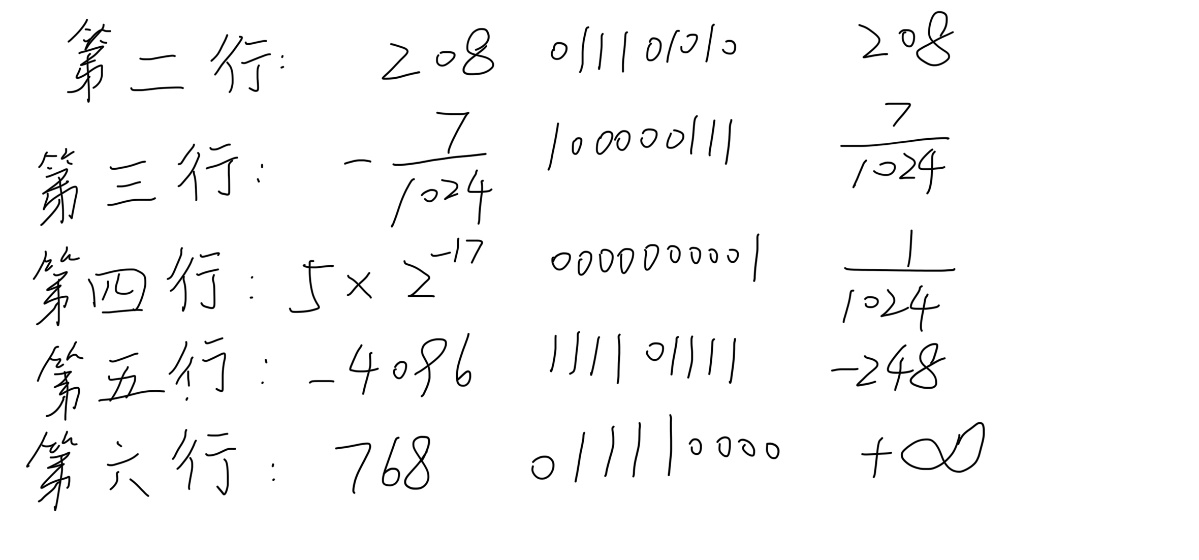 第二行: 208 011101010 208
第三行: -7/1024 100000111 7/1024
第四行: 5×2^-17 0000000001 1/1024
第五行: -4096 111101111 -248
第六行: 768 011110000 +∞